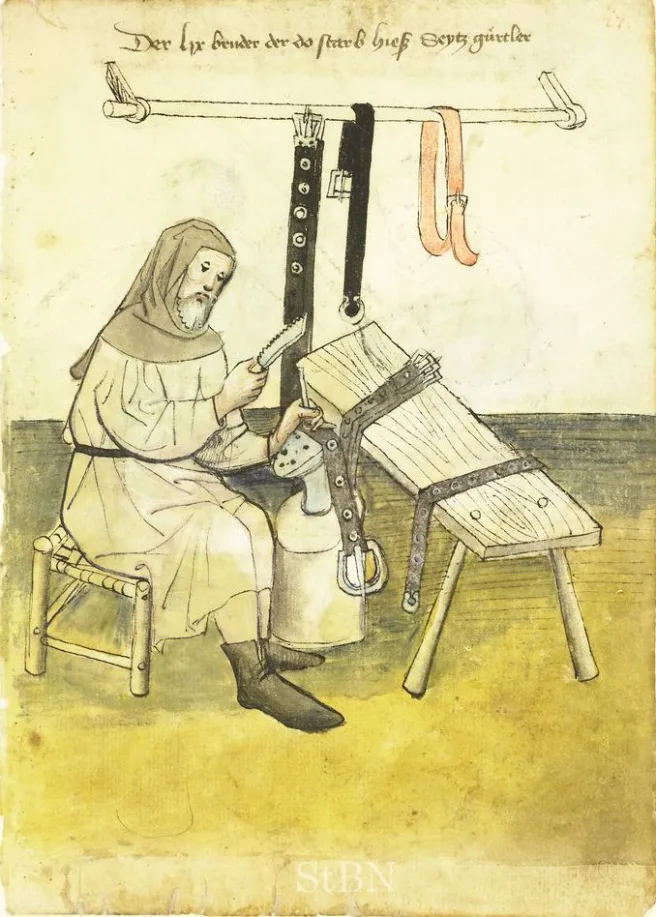 Der lix bruder der do starb hieß Seytz gürtler
27
StBN